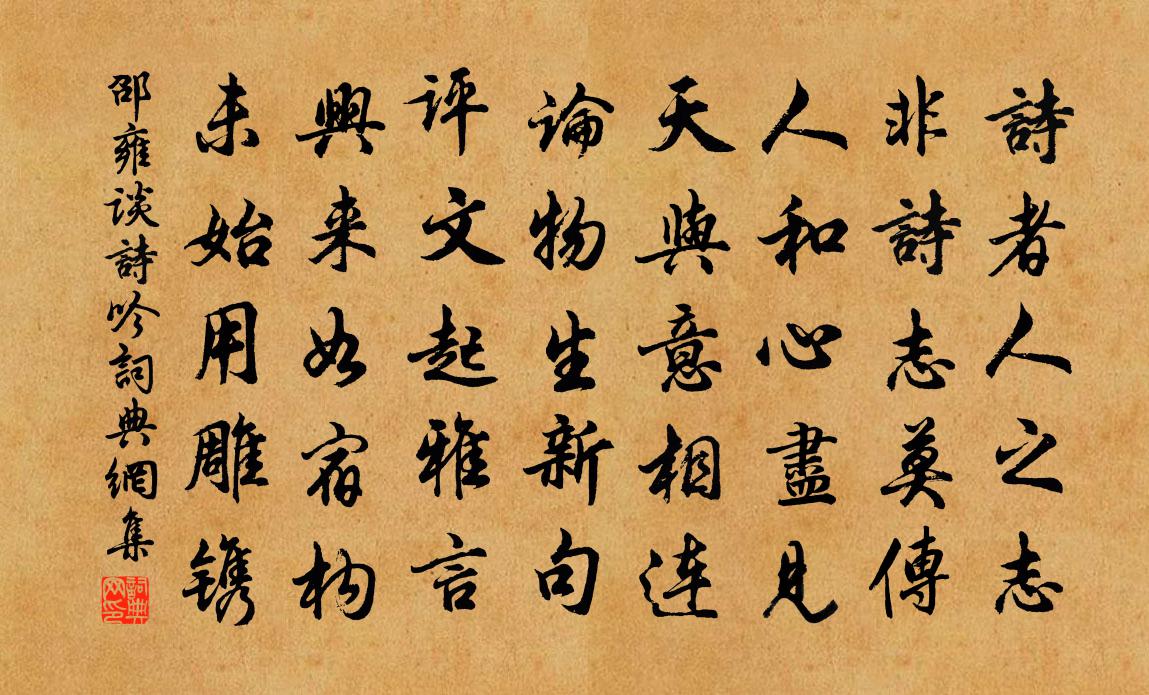 詩者人之志
非詩志莫傳
人和心盡見
天與意相連
論物生新句
评文起雅言
興来如宿构
未始用雕镌
邵雍谈詩吟詞典網集
詞典网印